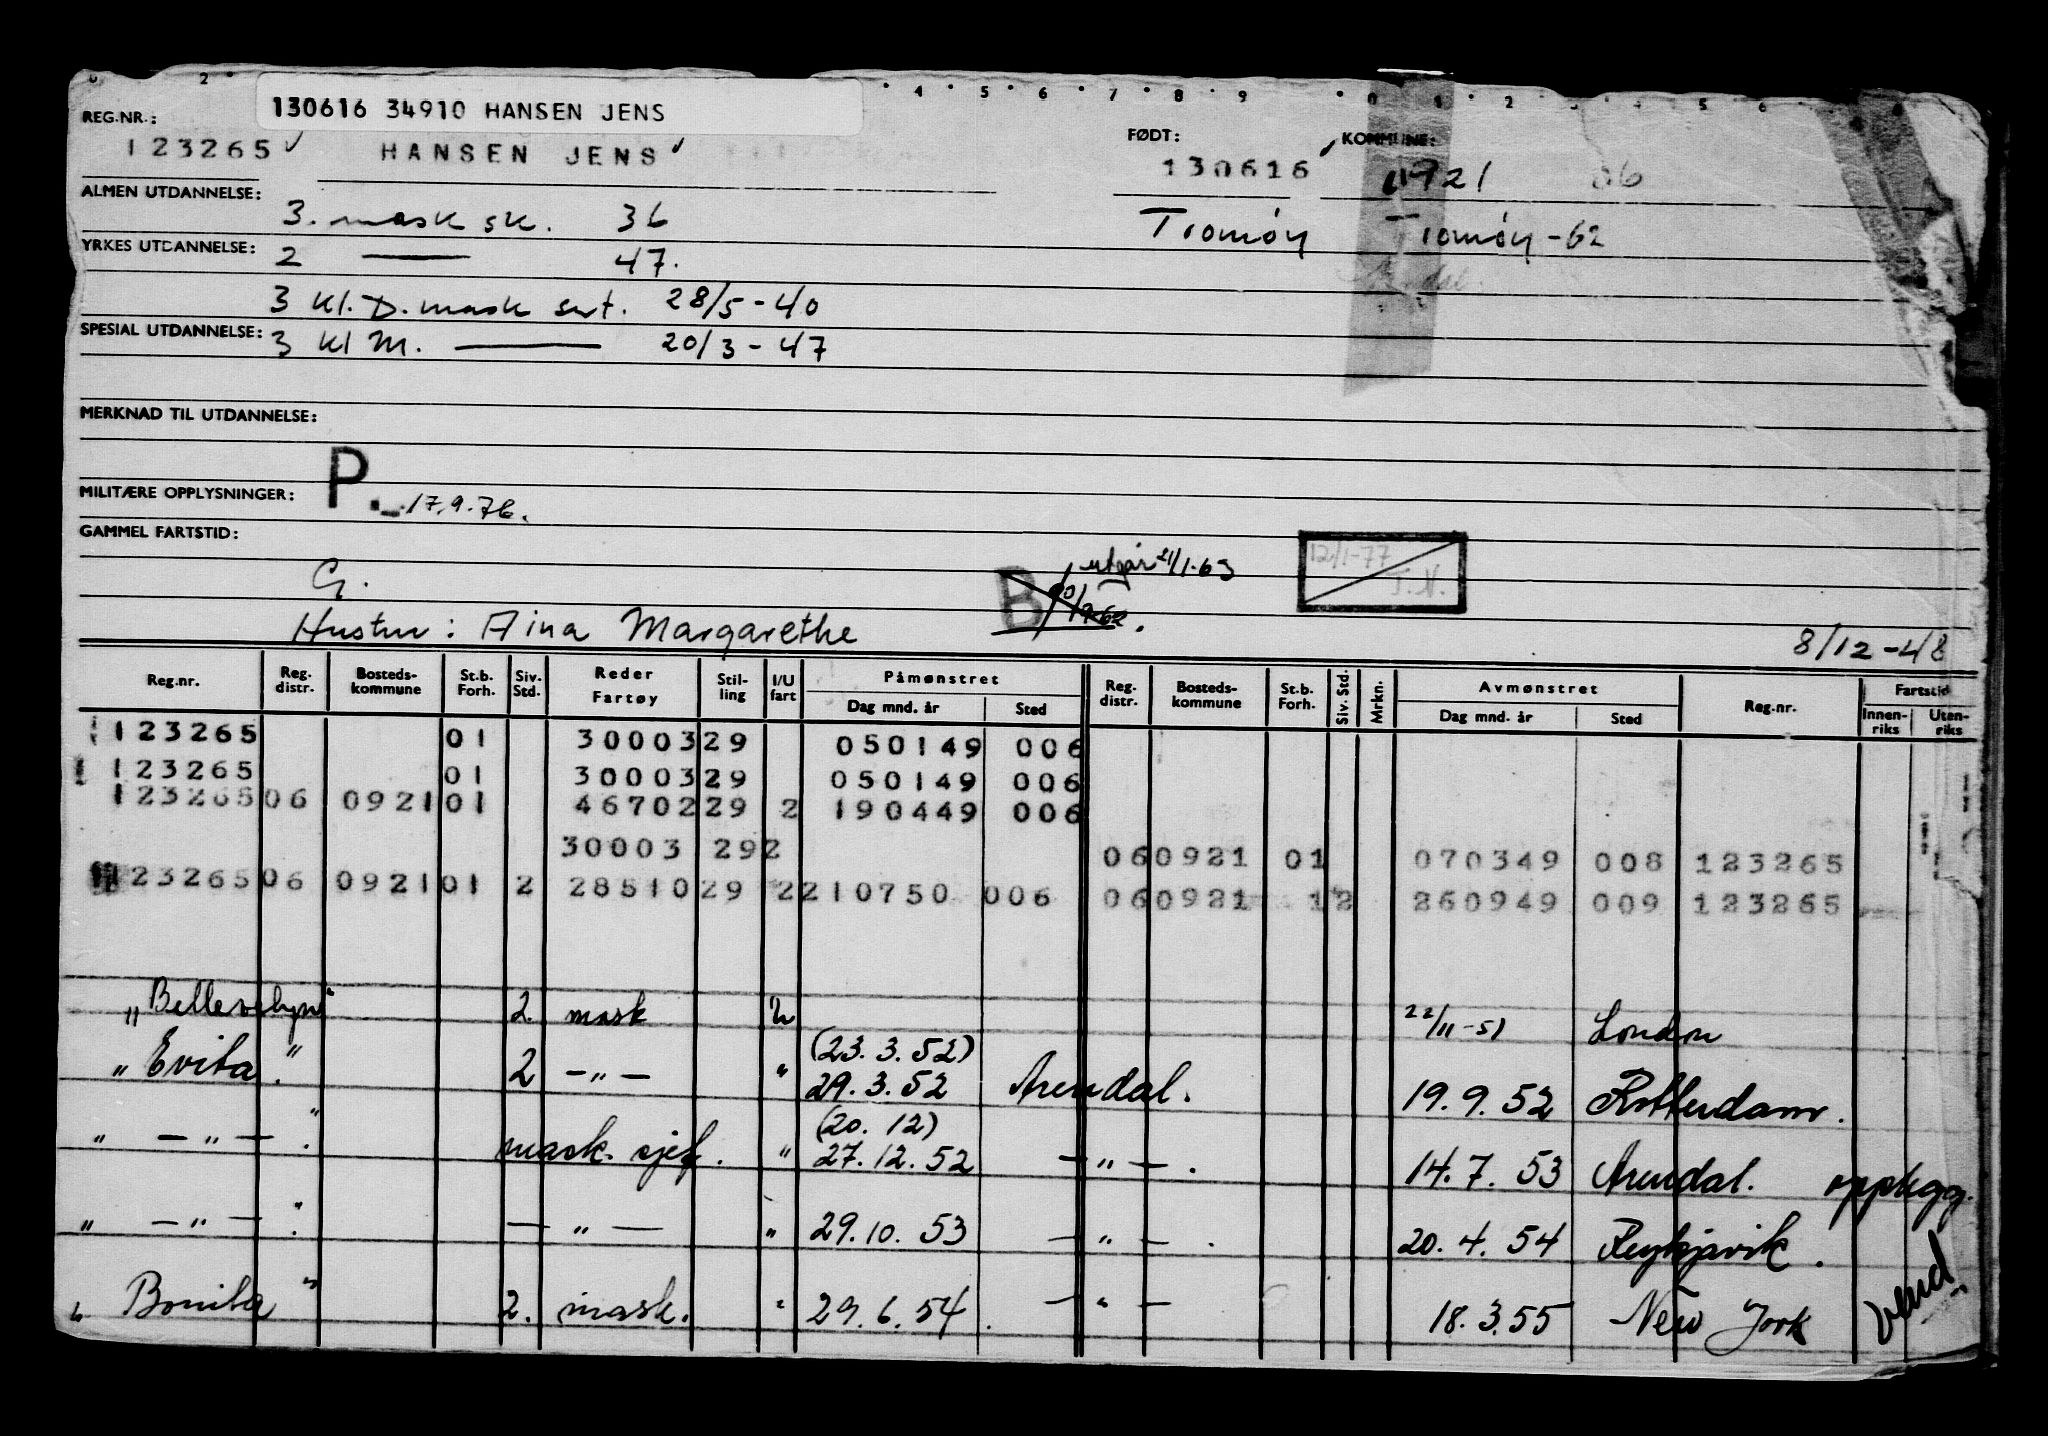 130616 34910 HANSEN JENS
REG.NR.: FØDT: KOMMUNE:
123265 HANSEN JENS 130616 0921 06
ALMEN UTDANNELSE: 3. mask sk. 36 Tromøy Tromøy-62
YRKES UTDANNELSE: 2 — 47.
3 kl. D. mask sert. 28/5-40
SPESIAL UTDANNELSE: 3 kl M. — 20/3-47
MERKNAD TIL UTDANNELSE:
MILITÆRE OPPLYSNINGER: P. 17.9.76.
GAMMEL FARTSTID:
G. B utgår 21/1-63 12/1-77 T.N.
Hustru: Aina Margarethe 8/12-48
Reg.nr. Reg. distr. Bosteds-kommune St.b. Forh. Siv. Std. Reder Fartøy Stil-ling I/U fart Påmønstret Dag mnd. år Sted Reg. distr. Bosteds-kommune St.b. Forh. Siv. Std. Mrkn. Avmønstret Dag mnd. år Sted Reg.nr. Fartstid Innen-riks Uten-riks
123265 01 30003 29 050149 006
123265 01 30003 29 050149 006
123265 06 0921 01 46702 29 2 190449 006
30003 29 2 06 0921 01 070349 008 123265
123265 06 0921 01 2 28510 29 2 210750 006 06 0921 1 2 260949 009 123265
2. mask 22/11-51 London
"Evita". 2 -"- " (23.3.52) 29.3.52 Arendal. 19.9.52 Rotterdam.
" -"- ". mask. sjef. " (20.12) 27.12.52 -"-. 14.7.53 Arendal. opplegg.
" -"- ". -"- " 29.10.53 -"-. 20.4.54 Reykjavik.
"Bonita" 2. mask. " 29.6.54. -"- 18.3.55 New York
vend